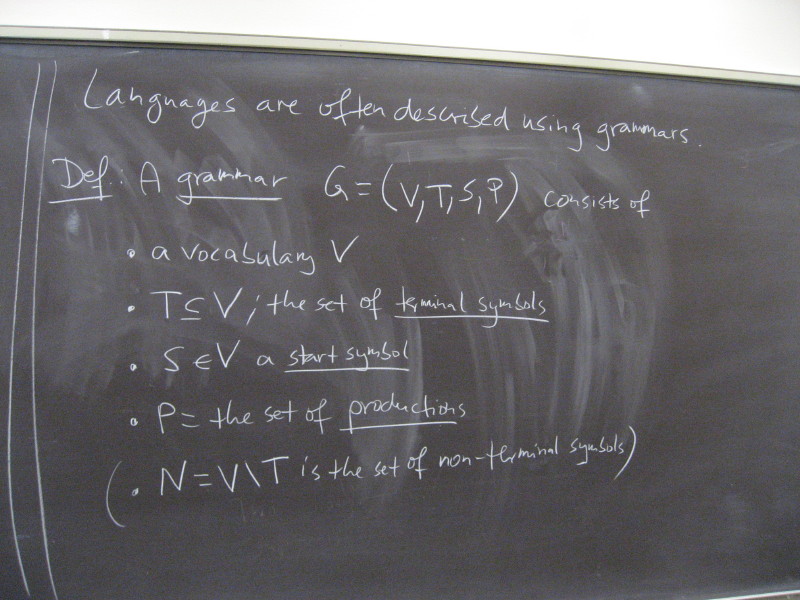 Languages are often described using grammars.
Def.: A grammar G = (V, T, S, P) consists of
• a vocabulary V
• T ⊆ V, the set of terminal symbols
• S ∈ V a start symbol
• P = the set of productions
(• N = V \ T is the set of non-terminal symbols)